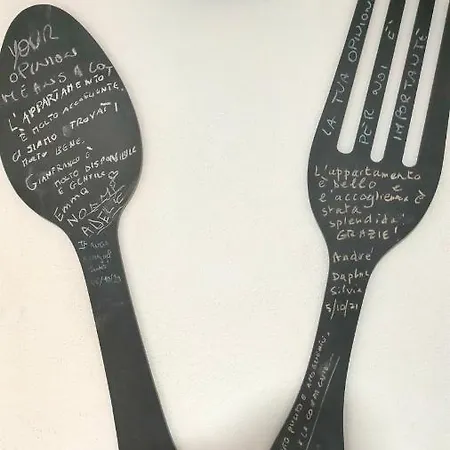 YOUR
OPINION
MEANS A LOT
L'APPARTAMENTO
È MOLTO ACCOGLIENTE.
CI SIAMO TROVATI
MOLTO BENE.
GIANFRANCO È
MOLTO DISPONIBILE
E GENTILE
Emma
NOEMI
ADELE
LA TUA OPINIONE
PER NOI È
IMPORTANTE
L'appartamento
è bello e
l'accoglienza è
stata
splendida!
GRAZIE!
André
Daphne
Silvia
5/10/21
PULITO E